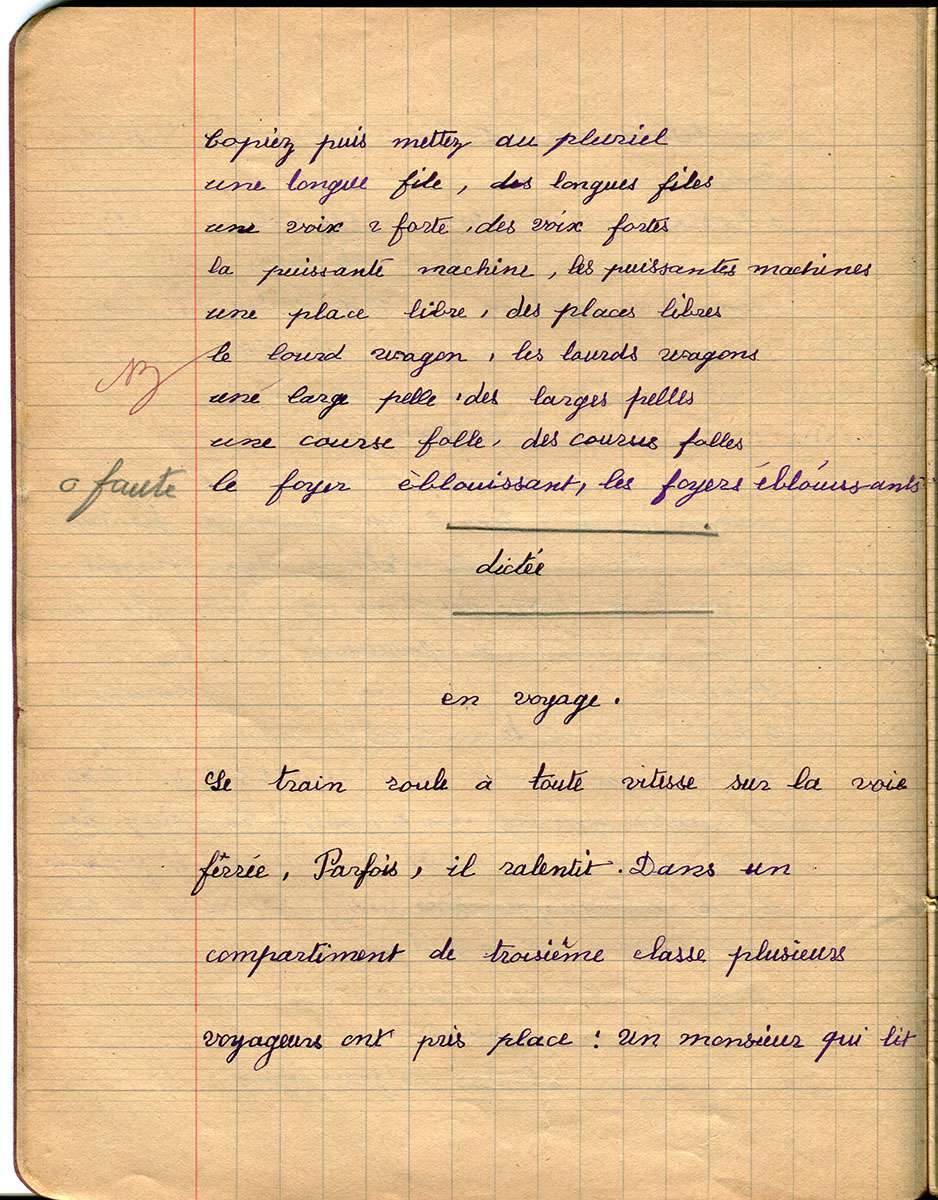 Copiez puis mettez au pluriel
une longue file, des longues files
une voix forte, des voix fortes
la puissante machine, les puissantes machines
une place libre, des places libres
le lourd wagon, les lourds wagons
une large pelle, des larges pelles
une course folle, des courses folles
0 faute le foyer èblouissant, les foyers éblouissants
dictée
en voyage.
Le train roule à toute vitesse sur la voie
fêrrée, Parfois, il ralentit. Dans un
compartiment de troisième classe plusieurs
voyageurs ont pris place : Un monsieur qui lit